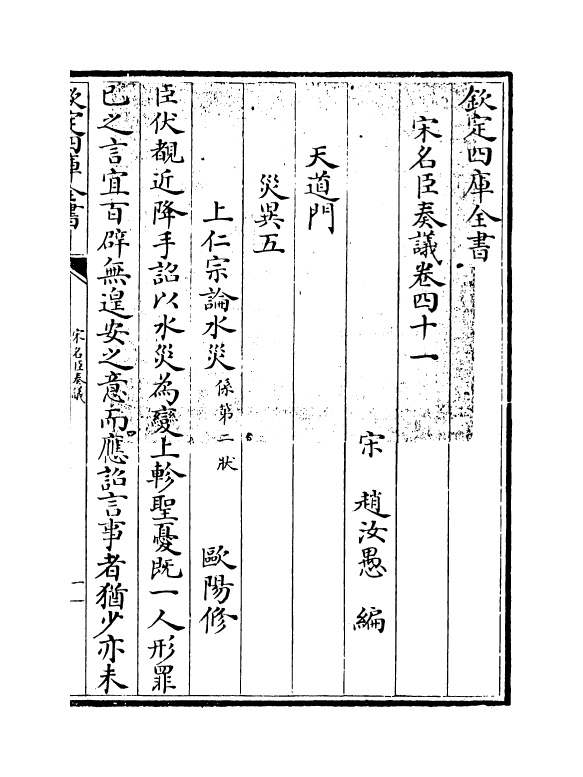 欽定四庫全書
宋名臣奏議卷四十一
宋 趙汝愚 編
天道門
災異五
上仁宗論水災係第二狀 歐陽修
臣伏覩近降手詔以水災為變上軫聖憂既一人形罪
已之言宜百辟無遑安之意而應詔言事者猶少亦未
欽定四庫全書 宋名臣奏議 一